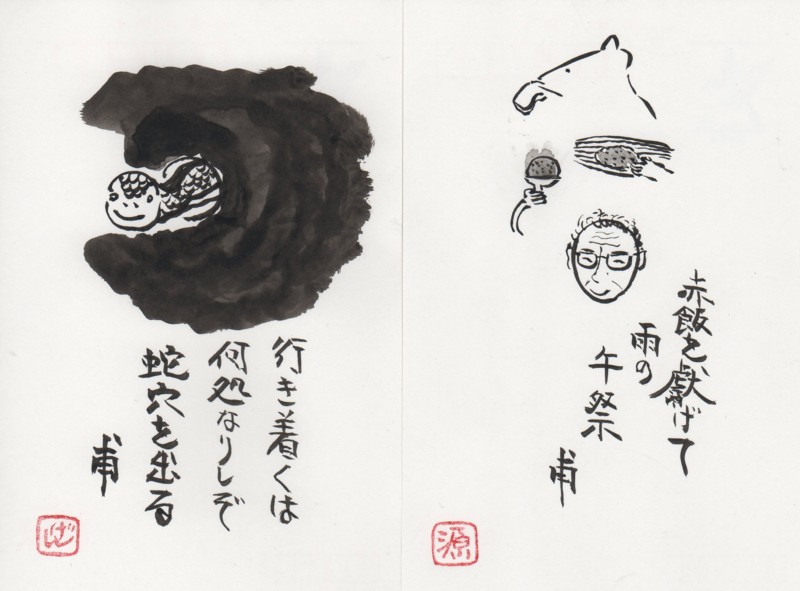 赤飯を献げて
雨の
午祭
甫
源
行き着くは
何処なりしぞ
蛇穴を出る
甫